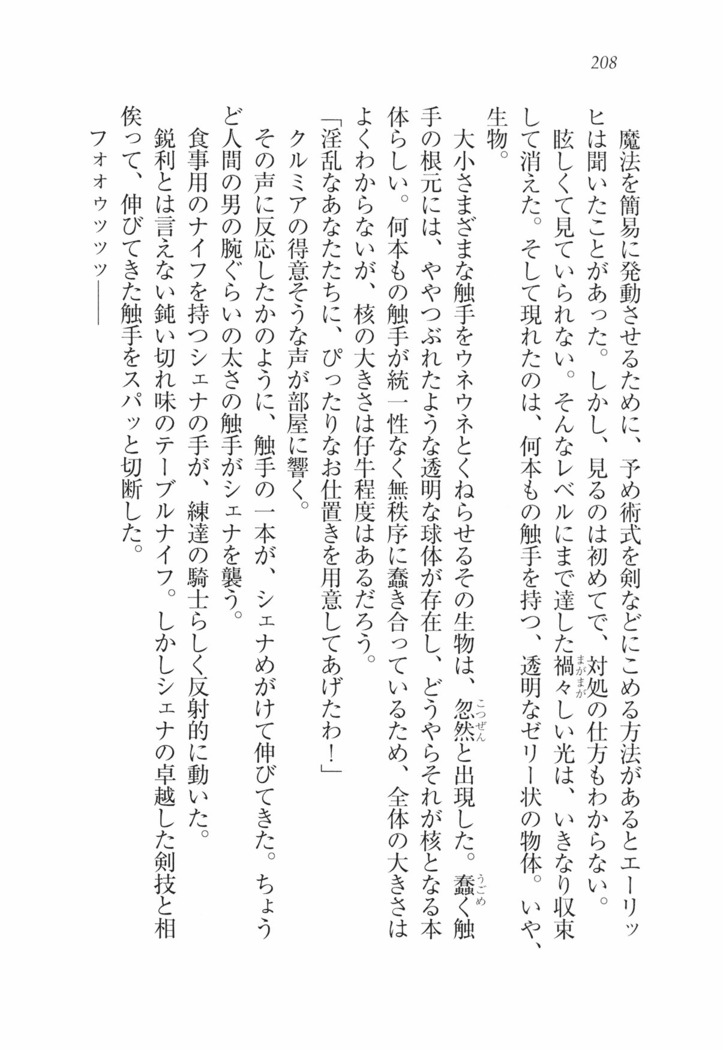 208
魔法を簡易に発動させるために、予め術式を剣などにこめる方法があるとエーリッ
ヒは聞いたことがあった。しかし、見るのは初めてで、対処の仕方もわからない。
眩しくて見ていられない。そんなレベルにまで達した禍々しい光は、いきなり収束
して消えた。そして現れたのは、何本もの触手を持つ、透明なゼリー状の物体。いや、
生物。
大小さまざまな触手をウネウネとくねらせるその生物は、忽然と出現した。蠢く触
手の根元には、ややつぶれたような透明な球体が存在し、どうやらそれが核となる本
体らしい。何本もの触手が統一性なく無秩序に蠢き合っているため、全体の大きさは
よくわからないが、核の大きさは仔牛程度はあるだろう。
「淫乱なあなたたちに、ぴったりなお仕置きを用意してあげたわ！」
クルミアの得意そうな声が部屋に響く。
その声に反応したかのように、触手の一本が、シェナめがけて伸びてきた。ちょう
ど人間の男の腕ぐらいの太さの触手がシェナを襲う。
食事用のナイフを持つシェナの手が、練達の騎士らしく反射的に動いた。
鋭利とは言えない鈍い切れ味のテーブルナイフ。しかしシェナの卓越した剣技と相
俟って、伸びてきた触手をスパッと切断した。
フォォゥッッッ――